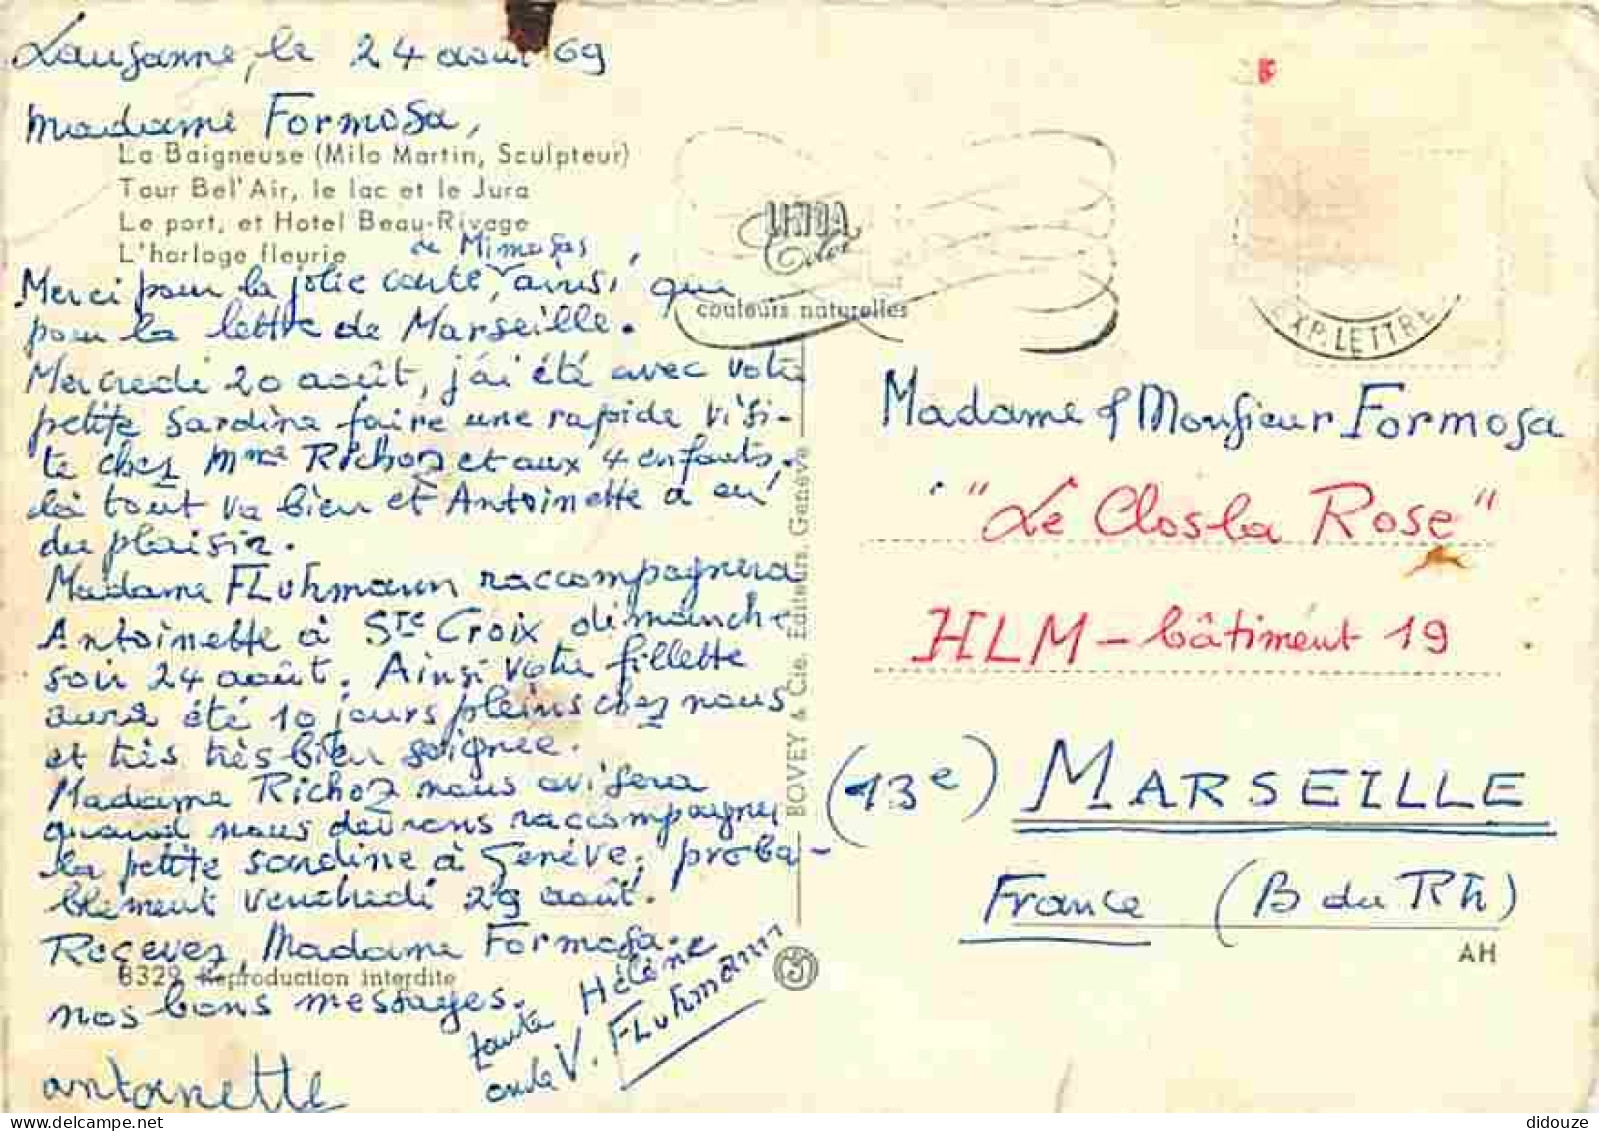 Lausanne, le 24 août 69
Madame Formosa,
La Baigneuse (Milo Martin, Sculpteur)
Tour Bel'Air, le lac et le Jura
Le port, et Hotel Beau-Rivage
L'horloge fleurie
de Mimosas
Merci pour la jolie carte, ainsi que
pour la lettre de Marseille.
Mercredi 20 août, j'ai été avec votre
petite sardine faire une rapide visi-
te chez Mme Richoz et aux 4 enfants.
Là tout va bien et Antoinette a eu
du plaisir.
Madame FLuhmann raccompagnera
Antoinette à Ste Croix dimanche
soir 24 août. Ainsi votre fillette
aura été 10 jours pleins chez nous
et très très bien soignée.
Madame Richoz nous avisera
quand nous devrons raccompagner
la petite sardine à Genève, proba-
blement vendredi 29 août.
Recevez, Madame Formosa.
8329 Reproduction interdite
nos bons messages.
antoinette
tante Hélène
oncle V. FLuhmann
BOVEY & Cie. Editeurs. Genève
LINDA
Color
couleurs naturelles
EXP. LETTRE
Madame & Monsieur Formosa
"Le Clos la Rose"
HLM - bâtiment 19
(13e) MARSEILLE
France (B du Rh)
AH
didouze